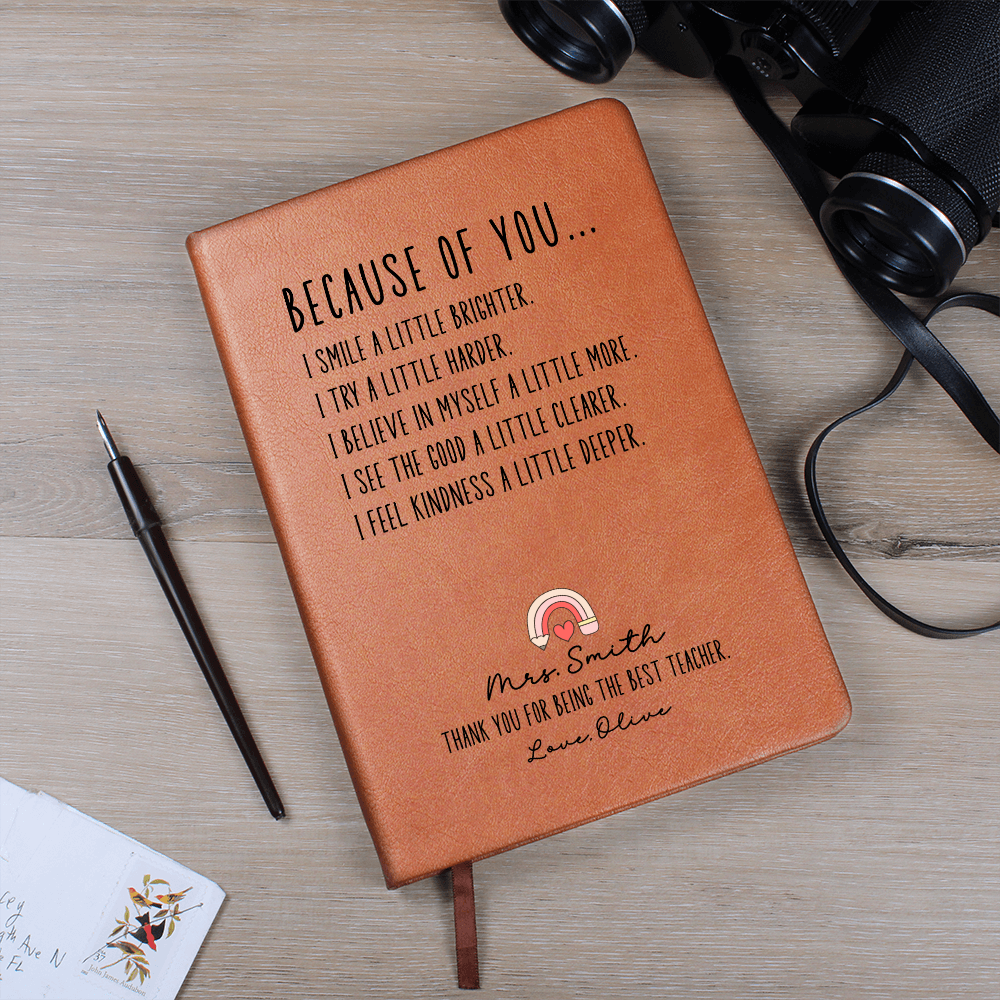 BECAUSE OF YOU...
I SMILE A LITTLE BRIGHTER.
I TRY A LITTLE HARDER.
I BELIEVE IN MYSELF A LITTLE MORE.
I SEE THE GOOD A LITTLE CLEARER.
I FEEL KINDNESS A LITTLE DEEPER.
Mrs. Smith
THANK YOU FOR BEING THE BEST TEACHER.
Love, Olive
Ave N
FL
37
John James Audubon